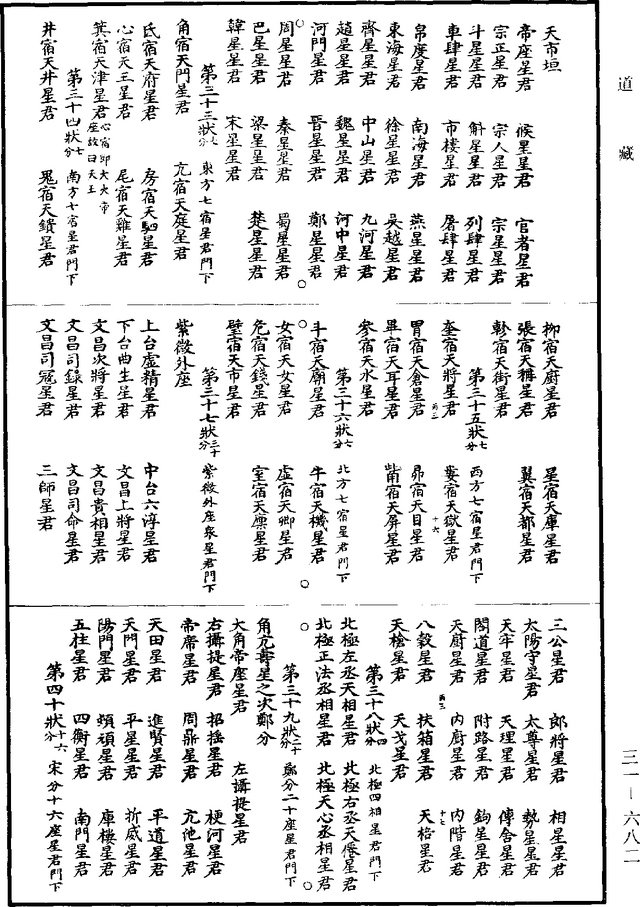 道藏
三一—六八二
天市垣
帝座星君 候星星君 官者星君
宗正星君 宗人星君 宗星星君
斗星星君 斛星星君 列肆星君
車肆星君 市樓星君 屠肆星君
帛度星君 南海星君 燕星星君
東海星君 徐星星君 吳越星君
齊星星君 中山星君 九河星君
趙星星君 魏星星君 河中星君
河門星君 晉星星君 鄭星星君
周星星君 秦星星君 蜀星星君
巴星星君 梁星星君 楚星星君
韓星星君 宋星星君
第三十三狀七分 東方七宿星君門下
角宿天門星君 亢宿天庭星君
氐宿天府星君 房宿天駟星君
心宿天王星君 尾宿天雞星君
箕宿天津星君 心宿即大火帝座故曰天王
第三十四狀七分 南方七宿星君門下
井宿天井星君 鬼宿天鑕星君
柳宿天廚星君 星宿天庫星君
張宿天稱星君 翼宿天都星君
軫宿天街星君
第三十五狀七分 西方七宿星君門下
奎宿天將星君 婁宿天獄星君
胃宿天倉星君 昴宿天目星君
畢宿天耳星君 觜宿天屏星君
參宿天水星君
第三十六狀七分 北方七宿星君門下
斗宿天廟星君 牛宿天機星君
女宿天女星君 虛宿天卿星君
危宿天錢星君 室宿天廩星君
壁宿天市星君
第三十七狀三十分 紫微外座衆星君門下
紫微外座
上台虛精星君 中台六淳星君
下台曲生星君 文昌上將星君
文昌次將星君 文昌貴相星君
文昌司錄星君 文昌司命星君
文昌司寇星君 三師星君
三公星君 郎將星君 相星星君
太陽守星君 太尊星君 勢星星君
天牢星君 天理星君 傳舍星君
閣道星君 附路星君 鉤星星君
天廚星君 內廚星君 內階星君
八穀星君 扶箱星君 天棓星君
天槍星君 天戈星君
第三十八狀四分 北極四相星君門下
北極左丞天相星君 北極右丞天僊星君
北極正法丞相星君 北極天心丞相星君
第三十九狀二十分 鄭分二十座星君門下
角亢壽星之次鄭分
大角帝座星君 左攝提星君
右攝提星君 招搖星君 梗河星君
帝席星君 周鼎星君 亢池星君
天田星君 進賢星君 平道星君
天門星君 平星星君 折威星君
陽門星君 頓頑星君 庫樓星君
五柱星君 四衡星君 南門星君
第四十狀十六分 宋分十六座星君門下